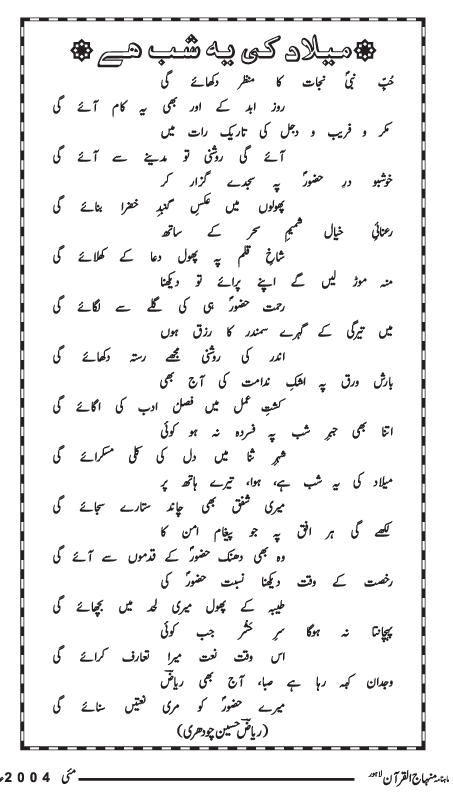 میلاد کی یہ شب ہے
حُبِّ نبیؐ نجات کا منظر دکھائے گی
روز ابد کے اور بھی یہ کام آئے گی
مکر و فریب و دجل کی تاریک رات میں
آئے گی روشنی تو مدینے سے آئے گی
خوشبو درِ حضورؐ پہ سجدے گزار کر
پھولوں میں عکسِ گنبدِ خضرا بنائے گی
رعنائیِ خیال شمیمِ سحر کے ساتھ
شاخِ قلم پہ پھول دعا کے کھلائے گی
منہ موڑ لیں گے اپنے پرائے تو دیکھنا
رحمت حضورؐ ہی کی گلے سے لگائے گی
میں تیرگی کے گہرے سمندر کا رزق ہوں
اندر کی روشنی مجھے رستہ دکھائے گی
بارش ورق پہ اشکِ ندامت کی آج بھی
کشتِ عمل میں فصل ادب کی اگائے گی
اتنا بھی جبرِ شب پہ فسردہ نہ ہو کوئی
شہرِ ثنا میں دل کی کلی مسکرائے گی
میلاد کی یہ شب ہے، ہوا، تیرے ہاتھ پر
میری شفق بھی چاند ستارے سجائے گی
لکھے گی ہر افق پہ جو پیغام امن کا
وہ بھی دھنک حضورؐ کے قدموں سے آئے گی
رخصت کے وقت دیکھنا نسبت حضورؐ کی
طیبہ کے پھول میری لحد میں بچھائے گی
پہچانتا نہ ہوگا سرِ حشر جب کوئی
اس وقت نعت میرا تعارف کرائے گی
وجدان کہہ رہا ہے صبا، آج بھی ریاضؔ
میرے حضورؐ کو مری نعتیں سنائے گی
(ریاضؔ حسین چودھری)
ماہنامہ منہاج القرآن لاہور مئی 2004ء